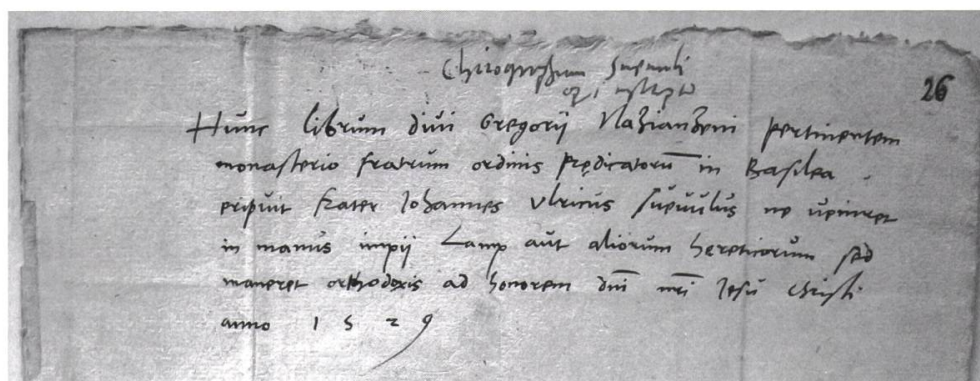 Chirographum Suevuli
26
Hunc librum divi Gregorij Nazianzeni pertinentem
monasterio fratrum ordinis prędicatorū in Basilea
eripuit frater Johannes Vlricus Suevulus ne veniret
in manus impij Lamp aut aliorum hereticorum sed
maneret orthodoxis ad honorem dnī nrī Jesu christi
anno 1529